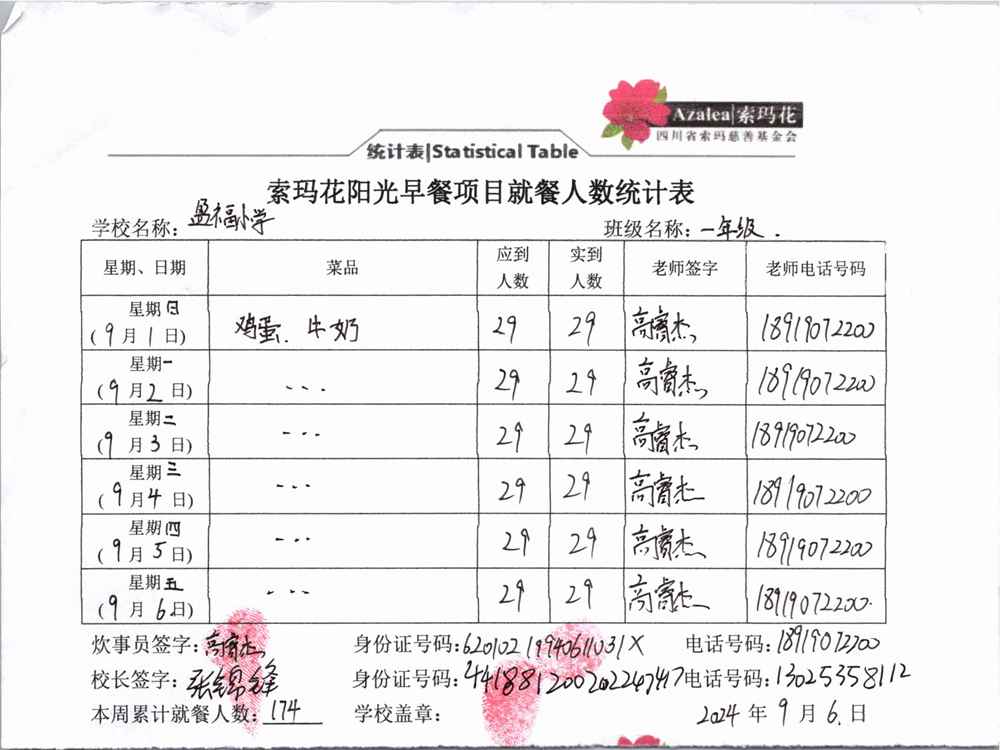 Azalea|索玛花
四川省索玛慈善基金会
统计表|Statistical Table
索玛花阳光早餐项目就餐人数统计表
学校名称: 盈福小学 班级名称: 一年级.
星期、日期 菜品 应到人数 实到人数 老师签字 老师电话号码
星期日 (9月1日) 鸡蛋、牛奶 29 29 高睿杰 18919072200
星期一 (9月2日) --. 29 29 高睿杰 18919072200
星期二 (9月3日) -.. 29 29 高睿杰 18919072200
星期三 (9月4日) --. 29 29 高睿杰 18919072200
星期四 (9月5日) -.. 29 29 高睿杰 18919072200
星期五 (9月6日) - -.. 29 29 高睿杰 18919072200.
炊事员签字: 高睿杰 身份证号码: 62010219940611031X 电话号码: 18919072200
校长签字: 张锦锋 身份证号码: 电话号码: 13025358112
本周累计就餐人数: 174 学校盖章: 2024年9月6.日